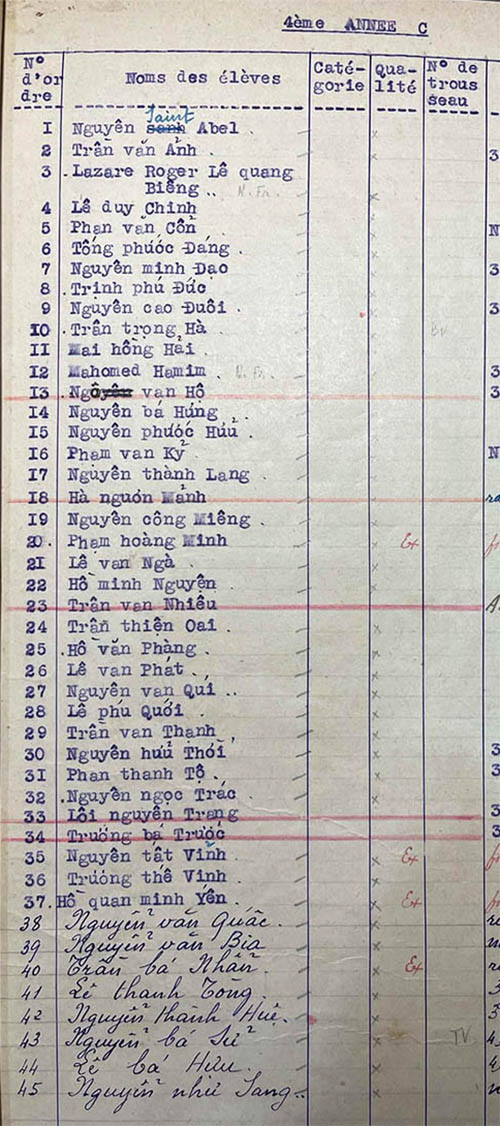 4ème ANNEE C
N° d'or dre
Noms des élèves
Caté- gorie
Qua- lité
N° de trous seau
Saint
1 Nguyên sanh Abel .
2 Trần văn Ảnh .
3 .Lazare Roger Lê quang
Biêng .. N. Fr.
4 Lê duy Chinh
5 Phan văn Cổn
6 Tống phước Đáng .
7 Nguyên minh Đạo
8 .Trịnh phú Đức
9 Nguyên cao Đuôi .
10 .Trân trọng Hà
11 Mai hồng Hải .
12 Mahomed Hamim . N. Fr.
13 .Ng van Hộ
14 Nguyên bá Hứng
15 Nguyên phước Hửu
16 Phạm van Kỷ
17 Nguyên thành Lang .
18 Hà nguơn Mảnh
19 Nguyên công Miêng .
20. Phạm hoàng Minh Ex
21 Lê van Ngà .
22 Hồ minh Nguyên
23 Trân van Nhiêu
24 Trần thiện Oai .
25 .Hồ văn Phàng .
26 Lê van Phát ..
27 Nguyên van Quí ..
28 Lê phú Quới .
29 Trần van Thạnh
30 Nguyên hửu Thới
31 Phan thanh Tộ .
32 .Nguyên ngọc Trác .
33 Lôi nguyên Trang
34 Trương bá Trước
35 Nguyên tất Vinh . Ex
36 Trương thế Vinh .
37. Hồ quan minh Yên . Ex
38 Nguyễn văn Quấc .
39 Nguyễn văn Bia
40 Trần bá Nhẫn . Ex
41 Lê thanh Tòng
42 Nguyễn thành Huệ .
43 Nguyễn bá Sử TV
44 Lê bá Hưu .
45 Nguyễn như Sang ..